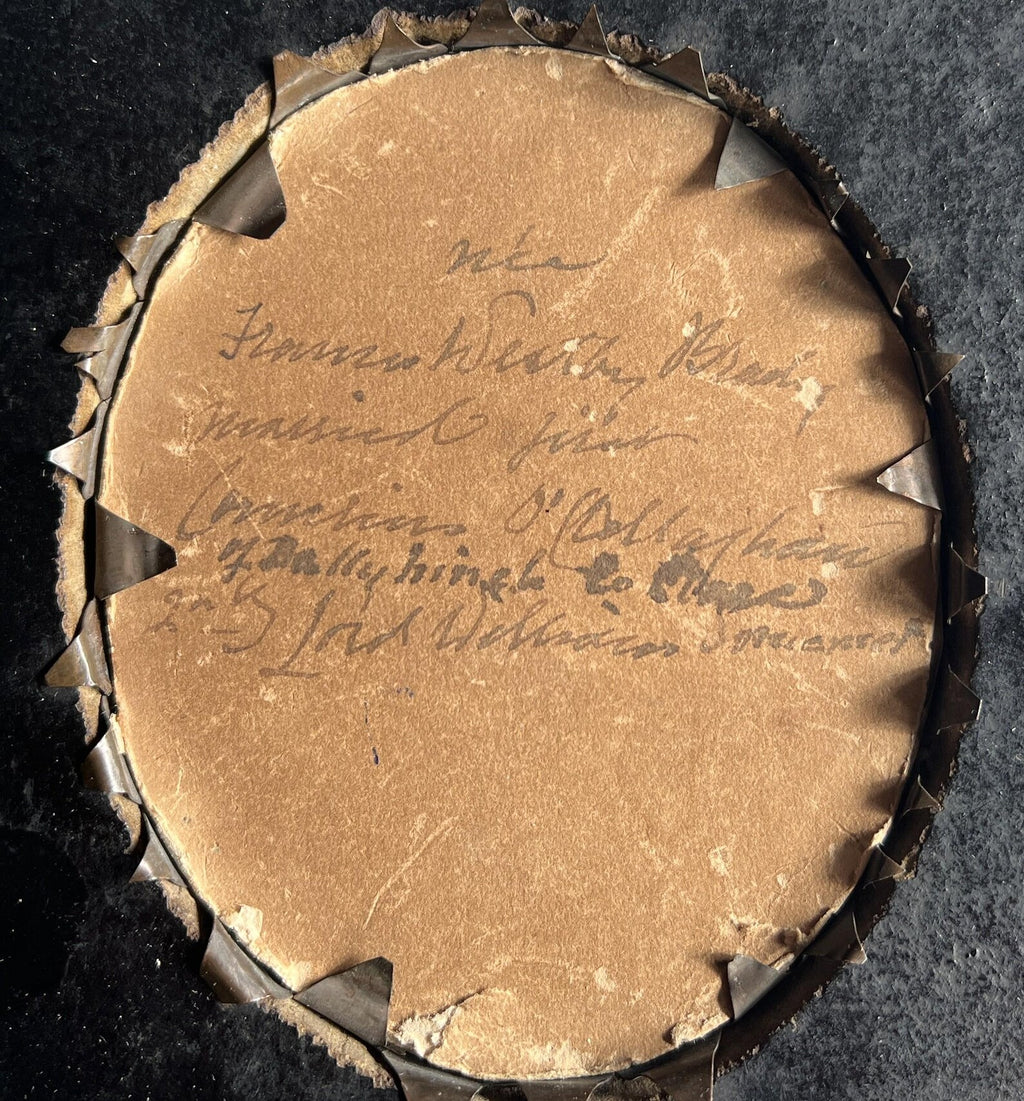 née
Frances Westby Brady
married first
Cornelius O'Callaghan
of Ballyhinch Co Clare
2nd ly Lord William